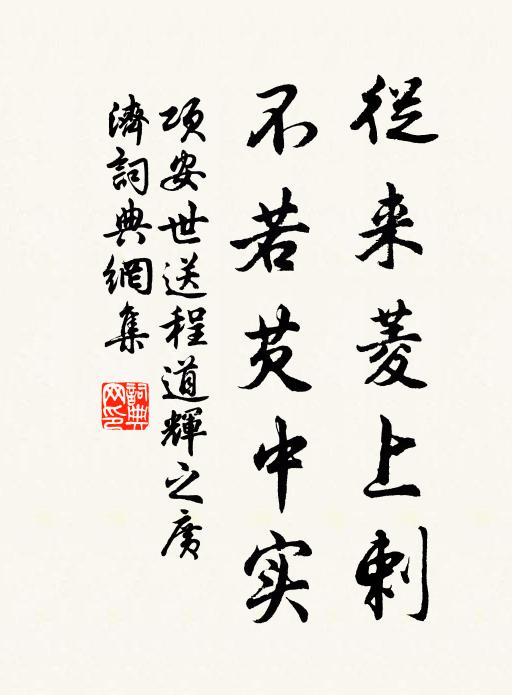 從来菱上刺
不若芡中实
项安世送程道輝之廣
濟詞典網集
詞典
网印